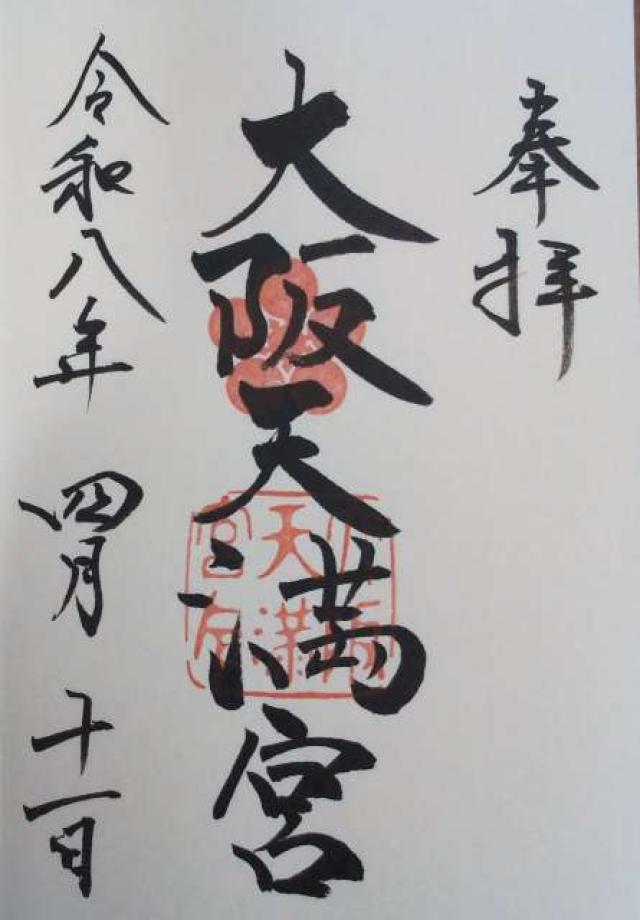 奉拝
大阪天満宮
令和八年 四月 十一日